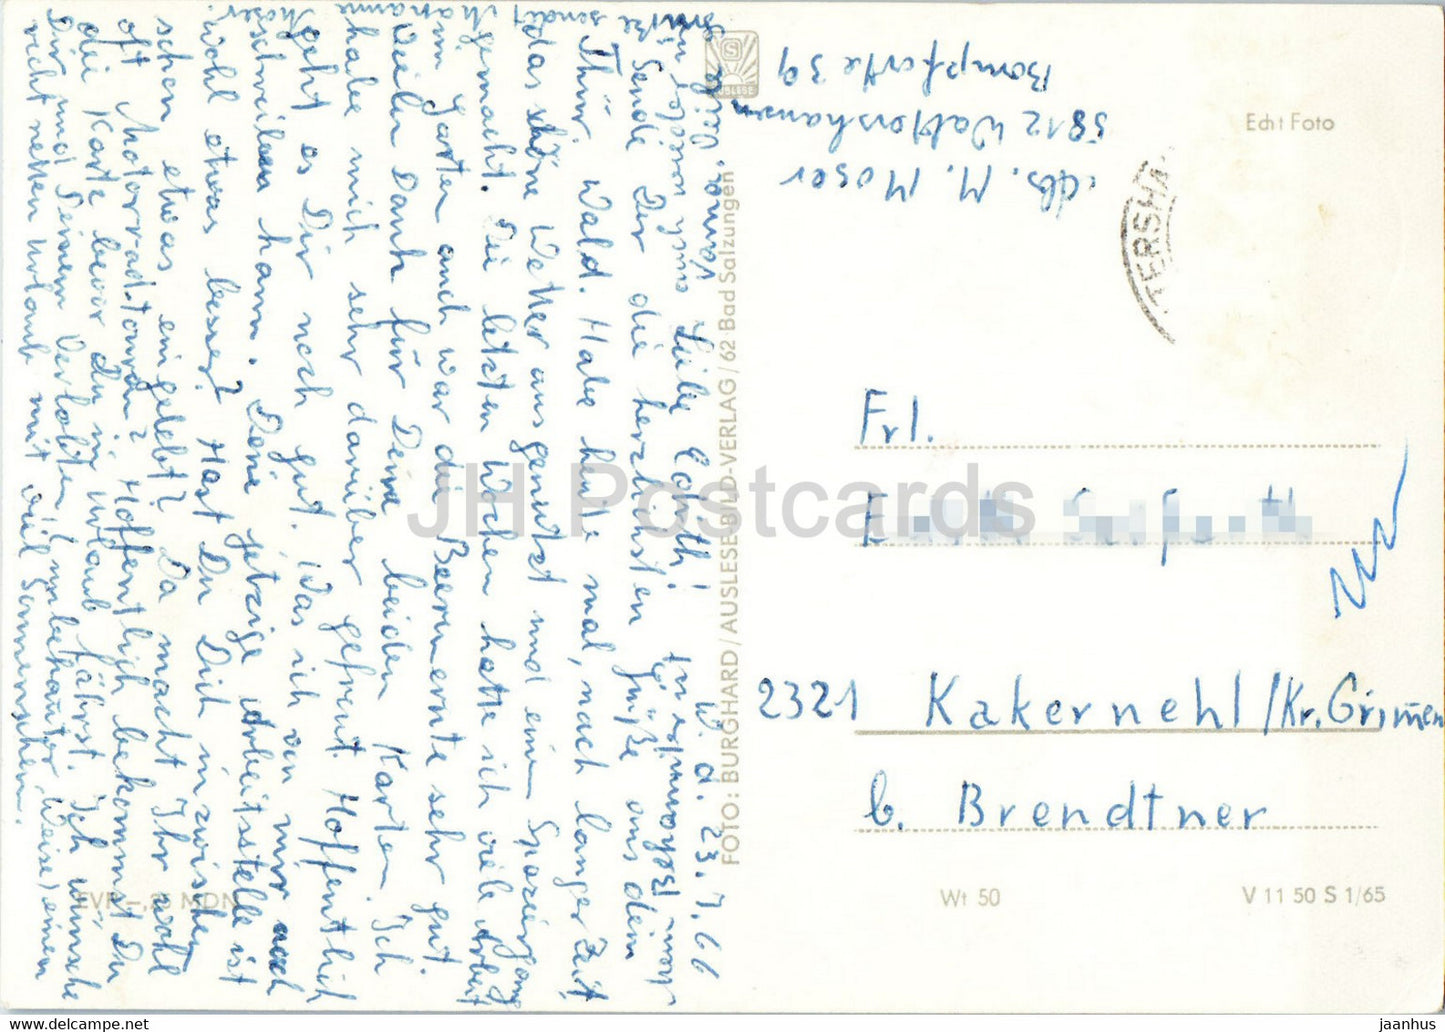 W. d. 23.7.66
Liebe Edith!
Sende Dir die herzlichsten Grüße aus dem
Thür. Wald. Habe heute mal, nach langer Zeit,
das schöne Wetter ausgenutzt und einen Spaziergang
gemacht. Die letzten Wochen hatte ich viele Arbeit
im Garten auch war die Beerenernte sehr gut.
Vielen Dank für Deine beiden Karten. Ich
habe mich sehr darüber gefreut. Hoffentlich
geht es Dir noch gut. Was ich von mir auch
schreiben kann. Deine jetzige Arbeitsstelle ist
wohl etwas besser? Hast Du Dich inzwischen
schon etwas eingelebt? Da macht Ihr wohl
oft Motorradtouren? Hoffentlich bekommst Du
die Karte bevor Du in Urlaub fährst. Ich wünsche
Dir und Deinem Verlobten (unbekannter Weise) einen
recht netten Urlaub mit viel Sonnenschein.
Grüße sendet Marianne Moser.
Abs. M. Moser
5812 Waltershausen
Borngasse 39
TERSHA
Echt Foto
Frl.
E
2321 Kakernehl/Kr. Grimmen
b. Brendtner
FOTO: BURGHARD/AUSLESEBILD-VERLAG/62 Bad Salzungen
S
AUSLESE
EVP -,25 MDN
Wt 50
V 11 50 S 1/65
JH Postcards
jaanhus
www.ebay.com